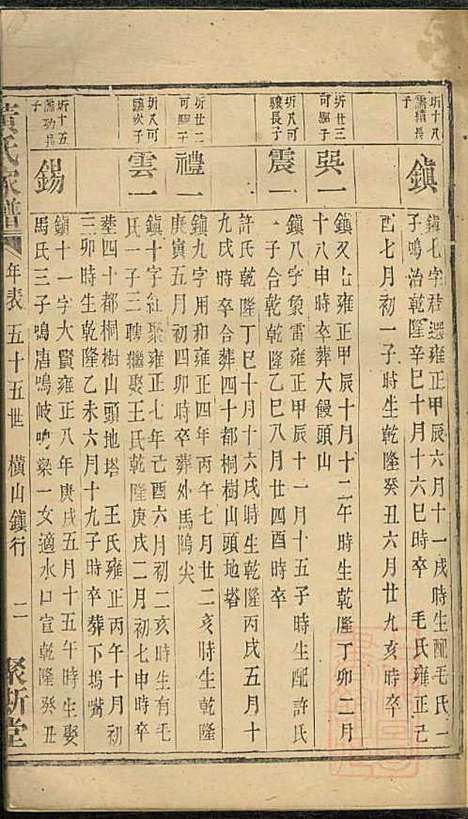 圻十八
鎮
鎮七字君選雍正甲辰六月十一戌時生配毛氏一
子鳴治乾隆辛巳十月十六巳時卒 毛氏雍正己
酉七月初一子時生乾隆癸丑六月廿九亥時卒
圻廿三
可驅子
吳一
鎮又七雍正甲辰十月十二午時生乾隆丁卯二月
十八申時卒葬大饅頭山
圻八可
驤長子
震一
鎮八字象雷雍正甲辰十一月十五子時生配許氏
一子合乾乾隆乙巳八月廿四酉時卒
許氏乾隆丁巳十月十六戌時生乾隆丙戌五月十
九戌時卒合葬四十都桐樹山頭地塔
圻廿二
禮一
鎮九字用和雍正四年丙午七月廿二亥時生乾隆
庚寅五月初四卯時卒葬外馬鴎尖
圻八可
驤次子
雲一
鎮十字紅聚雍正七年己酉六月初二亥時生有毛
氏一子三聘繼娶王氏乾隆庚戌二月初七申時卒
葬四十都桐樹山頭地塔 王氏雍正丙午十月初
三卯時生乾隆乙未六月十九子時卒葬下塢嘴
圻十五
錫
鎮十一字大賢雍正八年庚戌五月十五午時生娶
馬氏三子鳴唐鳴岐鳴梁一女適水口宣乾隆癸丑
黃氏家譜
年表 五十五世 橫山鎮行 二
聚斯堂